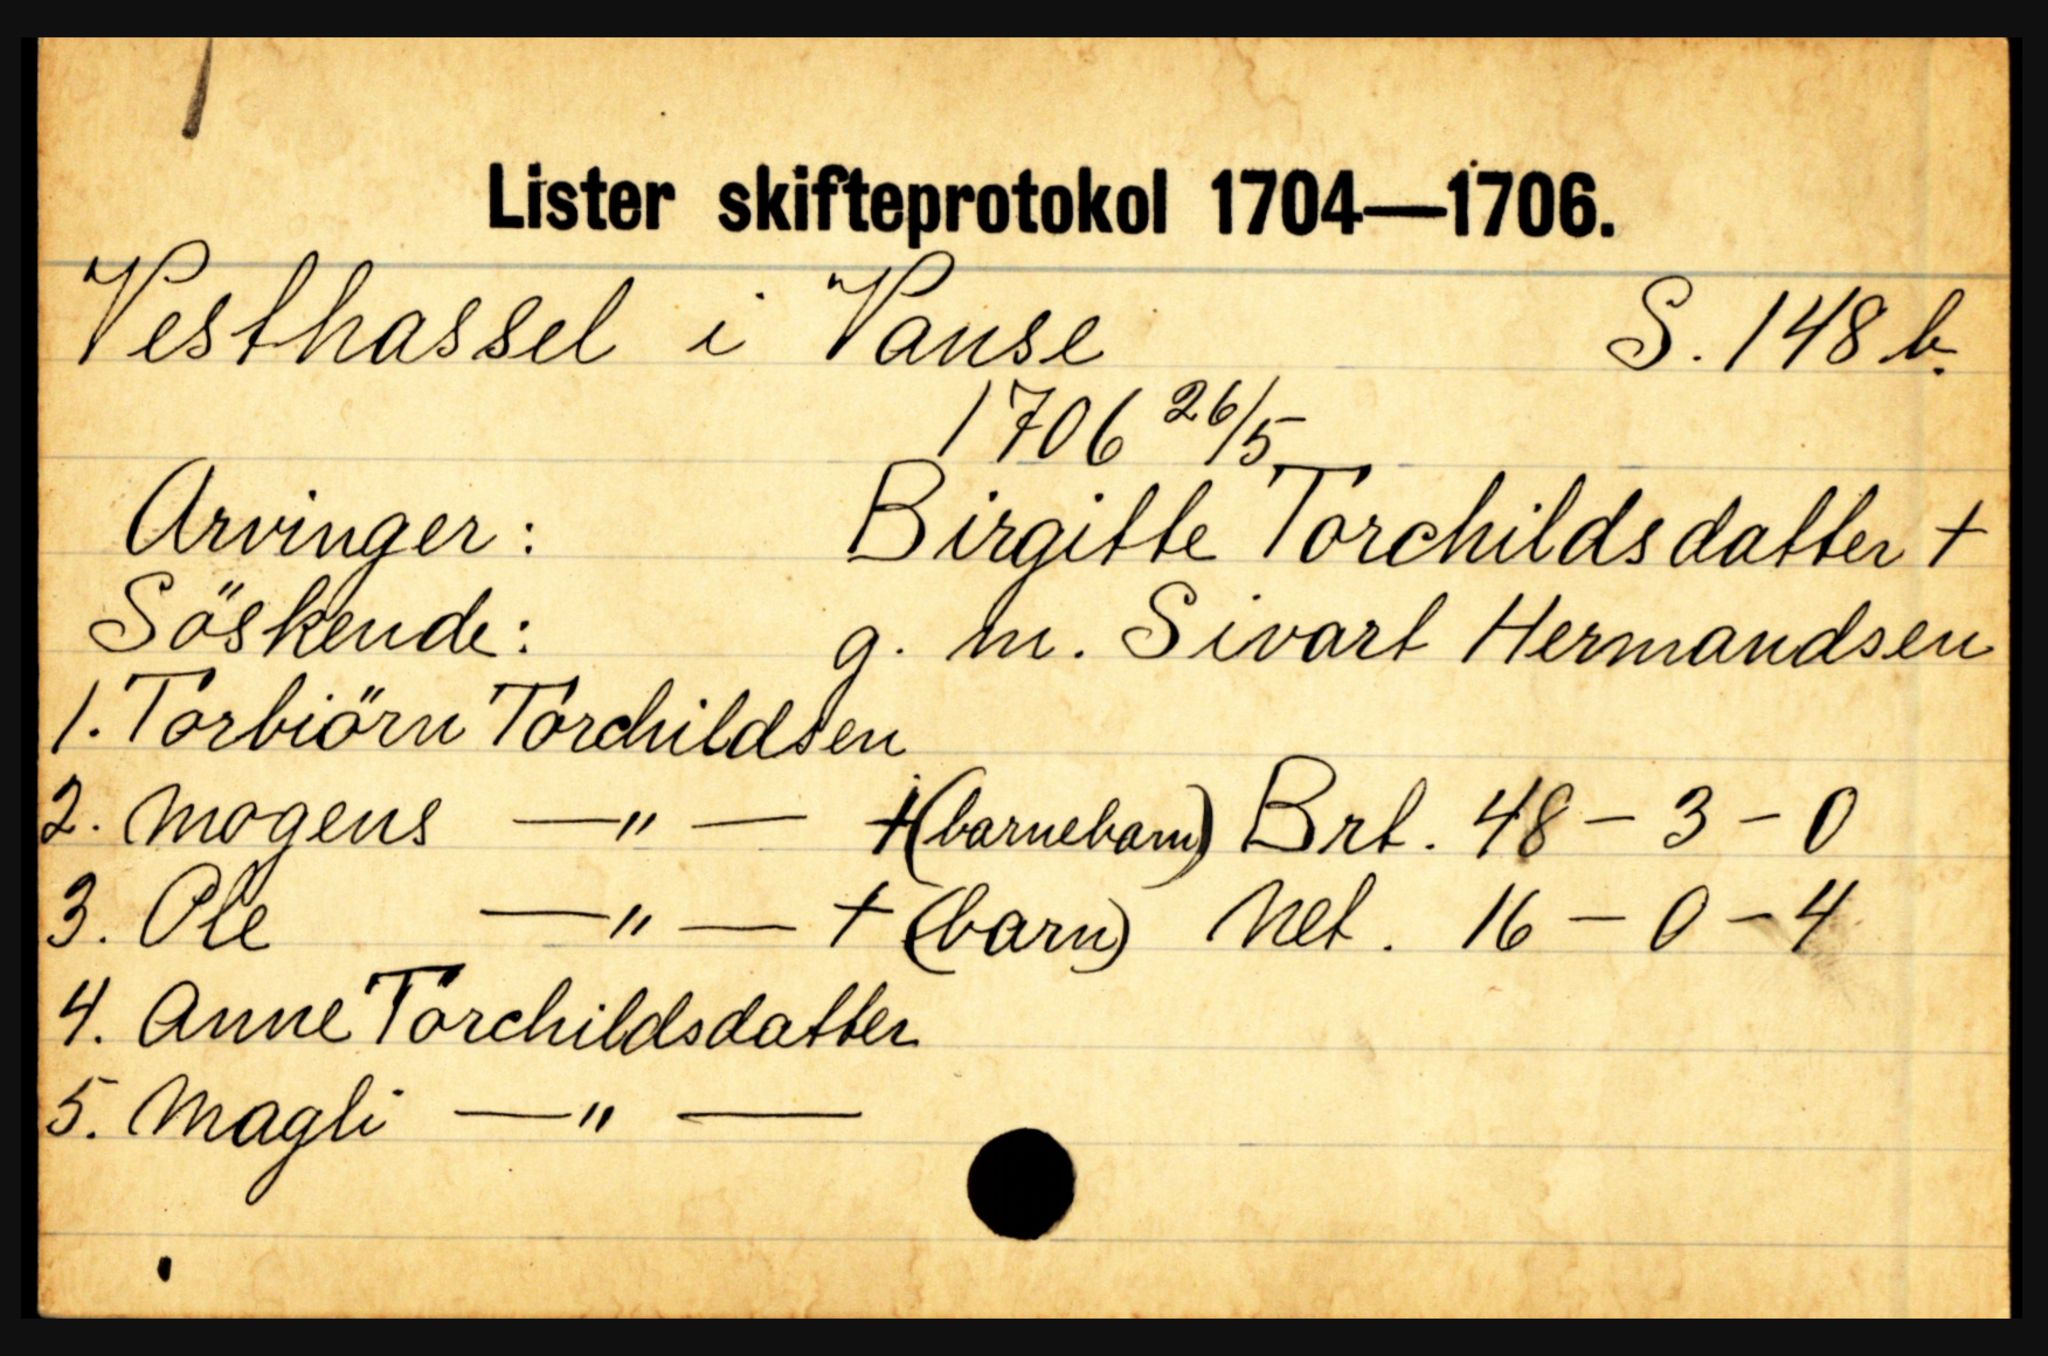 Lister skifteprotokol 1704—1706.
Vesthassel i Vanse S. 148 b.
1706 26/5
Arvinger: Birgitte Torchildsdatter +
Söskende: g. m. Sivart Hermandsen
1. Torbiörn Torchildsen
2. Mogens —"— + (barnebarn) Brt. 48 - 3 - 0
3. Ole —"— + (barn) Net. 16 - 0 - 4
4. Anne Torchildsdatter
5. Magli —"—